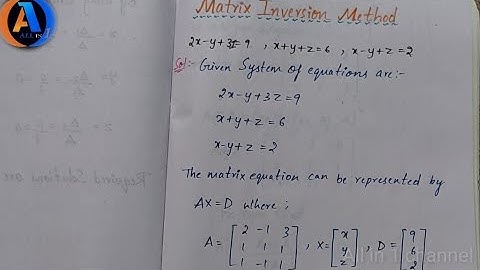 A
ALL in 1
Matrix Inversion Method
2x-y+3z=9 , x+y+z=6 , x-y+z=2
Sol:- Given System of equations are:-
2x-y+3z=9
x+y+z=6
x-y+z=2
The matrix equation can be represented by
AX=D where ;
A = [2 -1 3 , X= [x , D = [9
1 1 1 y 6
1 -1 1] z] 2]
All in 1 channel